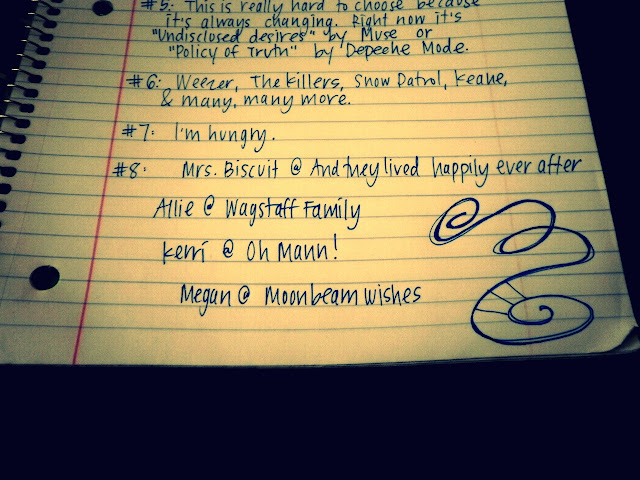 #5: This is really hard to choose because
it's always changing. Right now it's
"Undisclosed desires" by Muse or
"Policy of Truth" by Depeche Mode.
#6: Weezer, The Killers, Snow Patrol, Keane,
& many, many more.
#7: I'm hungry.
#8: Mrs. Biscuit @ And they lived happily ever after
Allie @ Wagstaff Family
Kerri @ Oh Mann!
Megan @ Moonbeam wishes